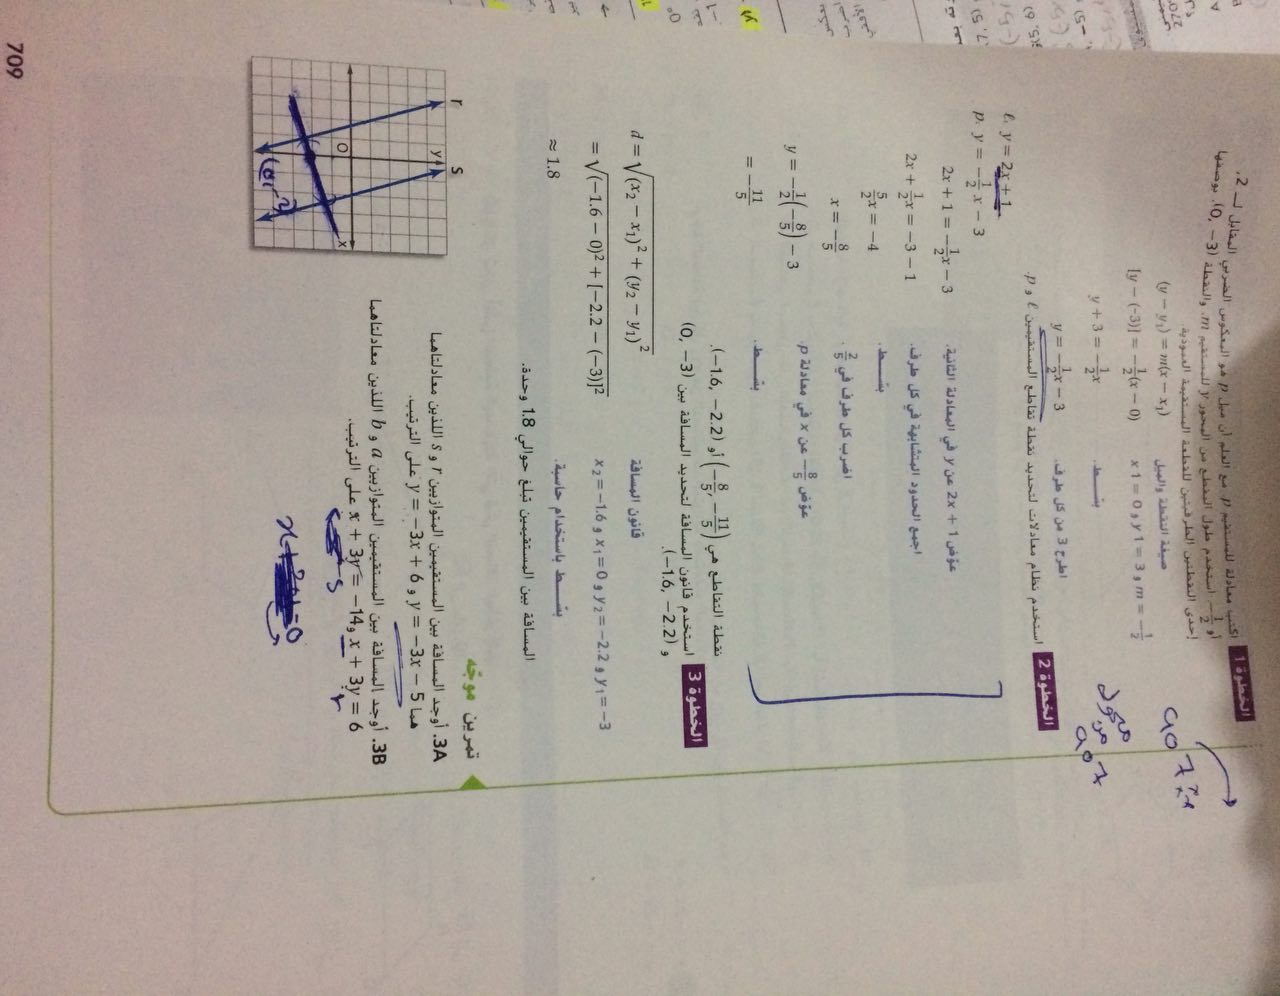 الخطوة 1 اكتب معادلة للمستقيم p مع العلم أن ميل p هو المعكوس الضربي المقابل لـ 2.
أو −1/2 استخدم طول المقطع من المحور y للمستقيم m، والنقطة (0, −3)، بوصفها
إحدى النقطتين الطرفيتين للقطعة المستقيمة العمودية
(y − y₁) = m(x − x₁) صيغة النقطة والميل
[y − (−3)] = −1/2(x − 0) x 1 = 0 و y 1 = 3 و m = −1/2
y + 3 = −1/2x بسّط.
y = −1/2x − 3 اطرح 3 من كل طرف.
الخطوة 2 استخدم نظام معادلات لتحديد نقطة تقاطع المستقيمين ℓ و p.
ℓ: y = 2x + 1
p: y = −1/2x − 3
2x + 1 = −1/2x − 3 عوّض 2x + 1 عن y في المعادلة الثانية.
2x + 1/2x = −3 − 1 اجمع الحدود المتشابهة في كل طرف.
5/2x = −4 بسّط.
x = −8/5 اضرب كل طرف في 2/5.
y = −1/2(−8/5) − 3 عوّض −8/5 عن x في معادلة p.
= −11/5 بسّط.
نقطة التقاطع هي (−8/5, −11/5) أو (−1.6, −2.2).
الخطوة 3 استخدم قانون المسافة لتحديد المسافة بين (0, −3)
و (−1.6, −2.2).
d = √(x₂ − x₁)² + (y₂ − y₁)² قانون المسافة
= √(−1.6 − 0)² + [−2.2 − (−3)]² x₂ = −1.6 و x₁ = 0 و y₂ = −2.2 و y₁ = −3
≈ 1.8 بسّط باستخدام حاسبة.
المسافة بين المستقيمين تبلغ حوالي 1.8 وحدة.
تمرين موجّه
3A. أوجد المسافة بين المستقيمين المتوازيين r و s اللذين معادلتاهما
هما y = −3x − 5 و y = −3x + 6 على الترتيب.
3B. أوجد المسافة بين المستقيمين المتوازيين a و b اللذين معادلتاهما
x + 3y = 6 و x + 3y = −14 على الترتيب.
r
y
s
O
x
709